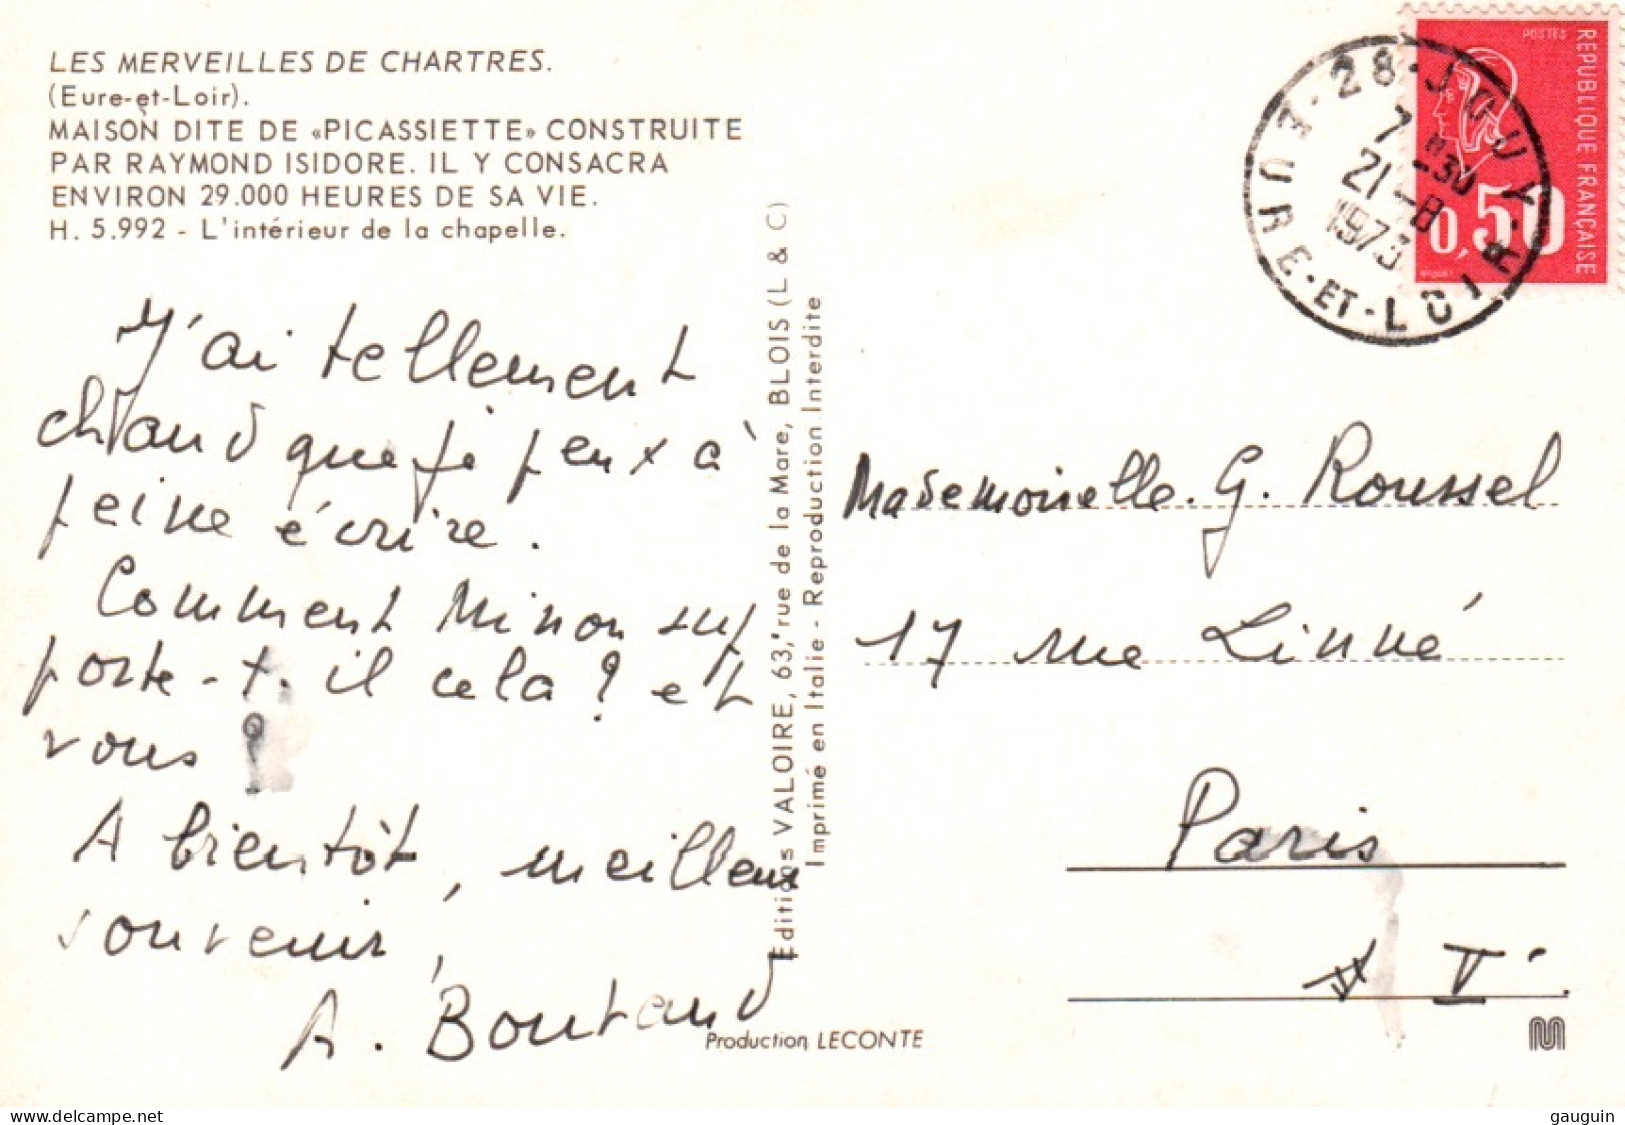 LES MERVEILLES DE CHARTRES.
(Eure-et-Loir).
MAISON DITE DE «PICASSIETTE» CONSTRUITE
PAR RAYMOND ISIDORE. IL Y CONSACRA
ENVIRON 29.000 HEURES DE SA VIE.
H. 5.992 - L'intérieur de la chapelle.
J'ai tellement
chaud que je peux à
peine écrire.
Comment Minon sup
porte-t-il cela ? et
vous ?
A bientôt, meilleur
souvenir,
A. Boutaud
Editions VALOIRE, 63, rue de la Mare, BLOIS (L & C)
Imprimé en Italie - Reproduction Interdite
Production LECONTE
POSTES
REPUBLIQUE FRANÇAISE
0,50
28-JOUY
7 H30
21-8
1973
EURE-ET-LOIR
Mademoiselle G. Roussel
17 rue Linné
Paris
V
gauguin
www.delcampe.net